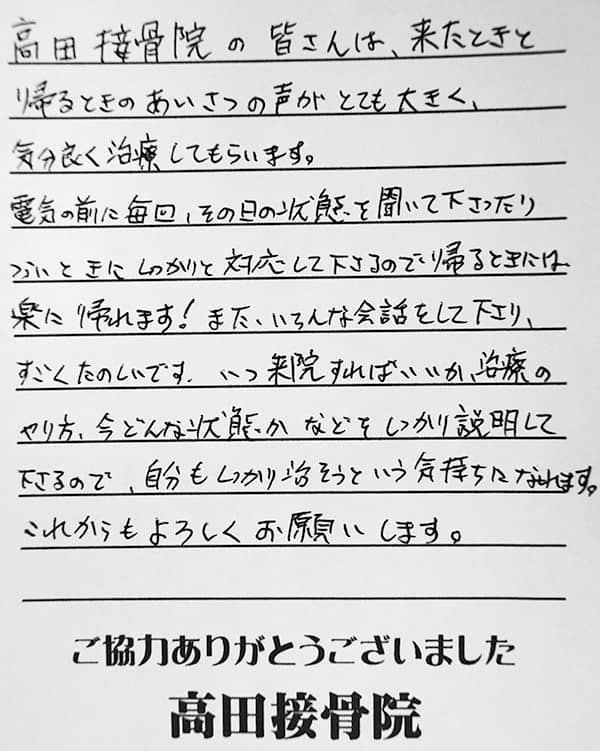 高田接骨院の皆さんは、来たときと
帰るときのあいさつの声がとても大きく、
気分良く治療してもらいます。
電気の前に毎回、その日の状態を聞いて下さったり
ふいときにしっかりと対応して下さるので帰るときには
楽に帰れます！また、いろんな会話をして下さり、
すごくたのしいです。いつ来院すればいいか、治療の
やり方、今どんな状態かなどをしっかり説明して
下さるので、自分もしっかり治そうという気持ちになれます。
これからもよろしくお願いします。
ご協力ありがとうございました
高田接骨院